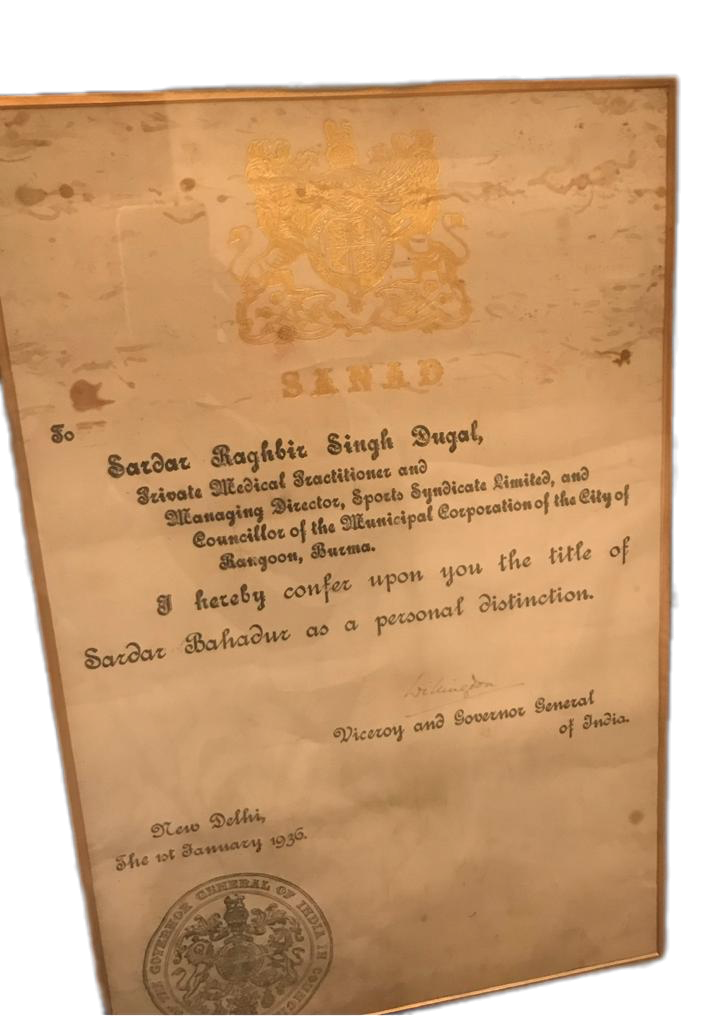 SANAD
To
Sardar Raghbir Singh Dugal,
Private Medical Practitioner and
Managing Director, Sports Syndicate Limited, and
Councillor of the Municipal Corporation of the City of
Rangoon, Burma.
I hereby confer upon you the title of
Sardar Bahadur as a personal distinction.
Willingdon
Viceroy and Governor General
of India.
New Delhi,
The 1st January 1936.
OF THE GOVERNOR GENERAL OF INDIA IN COUNCIL